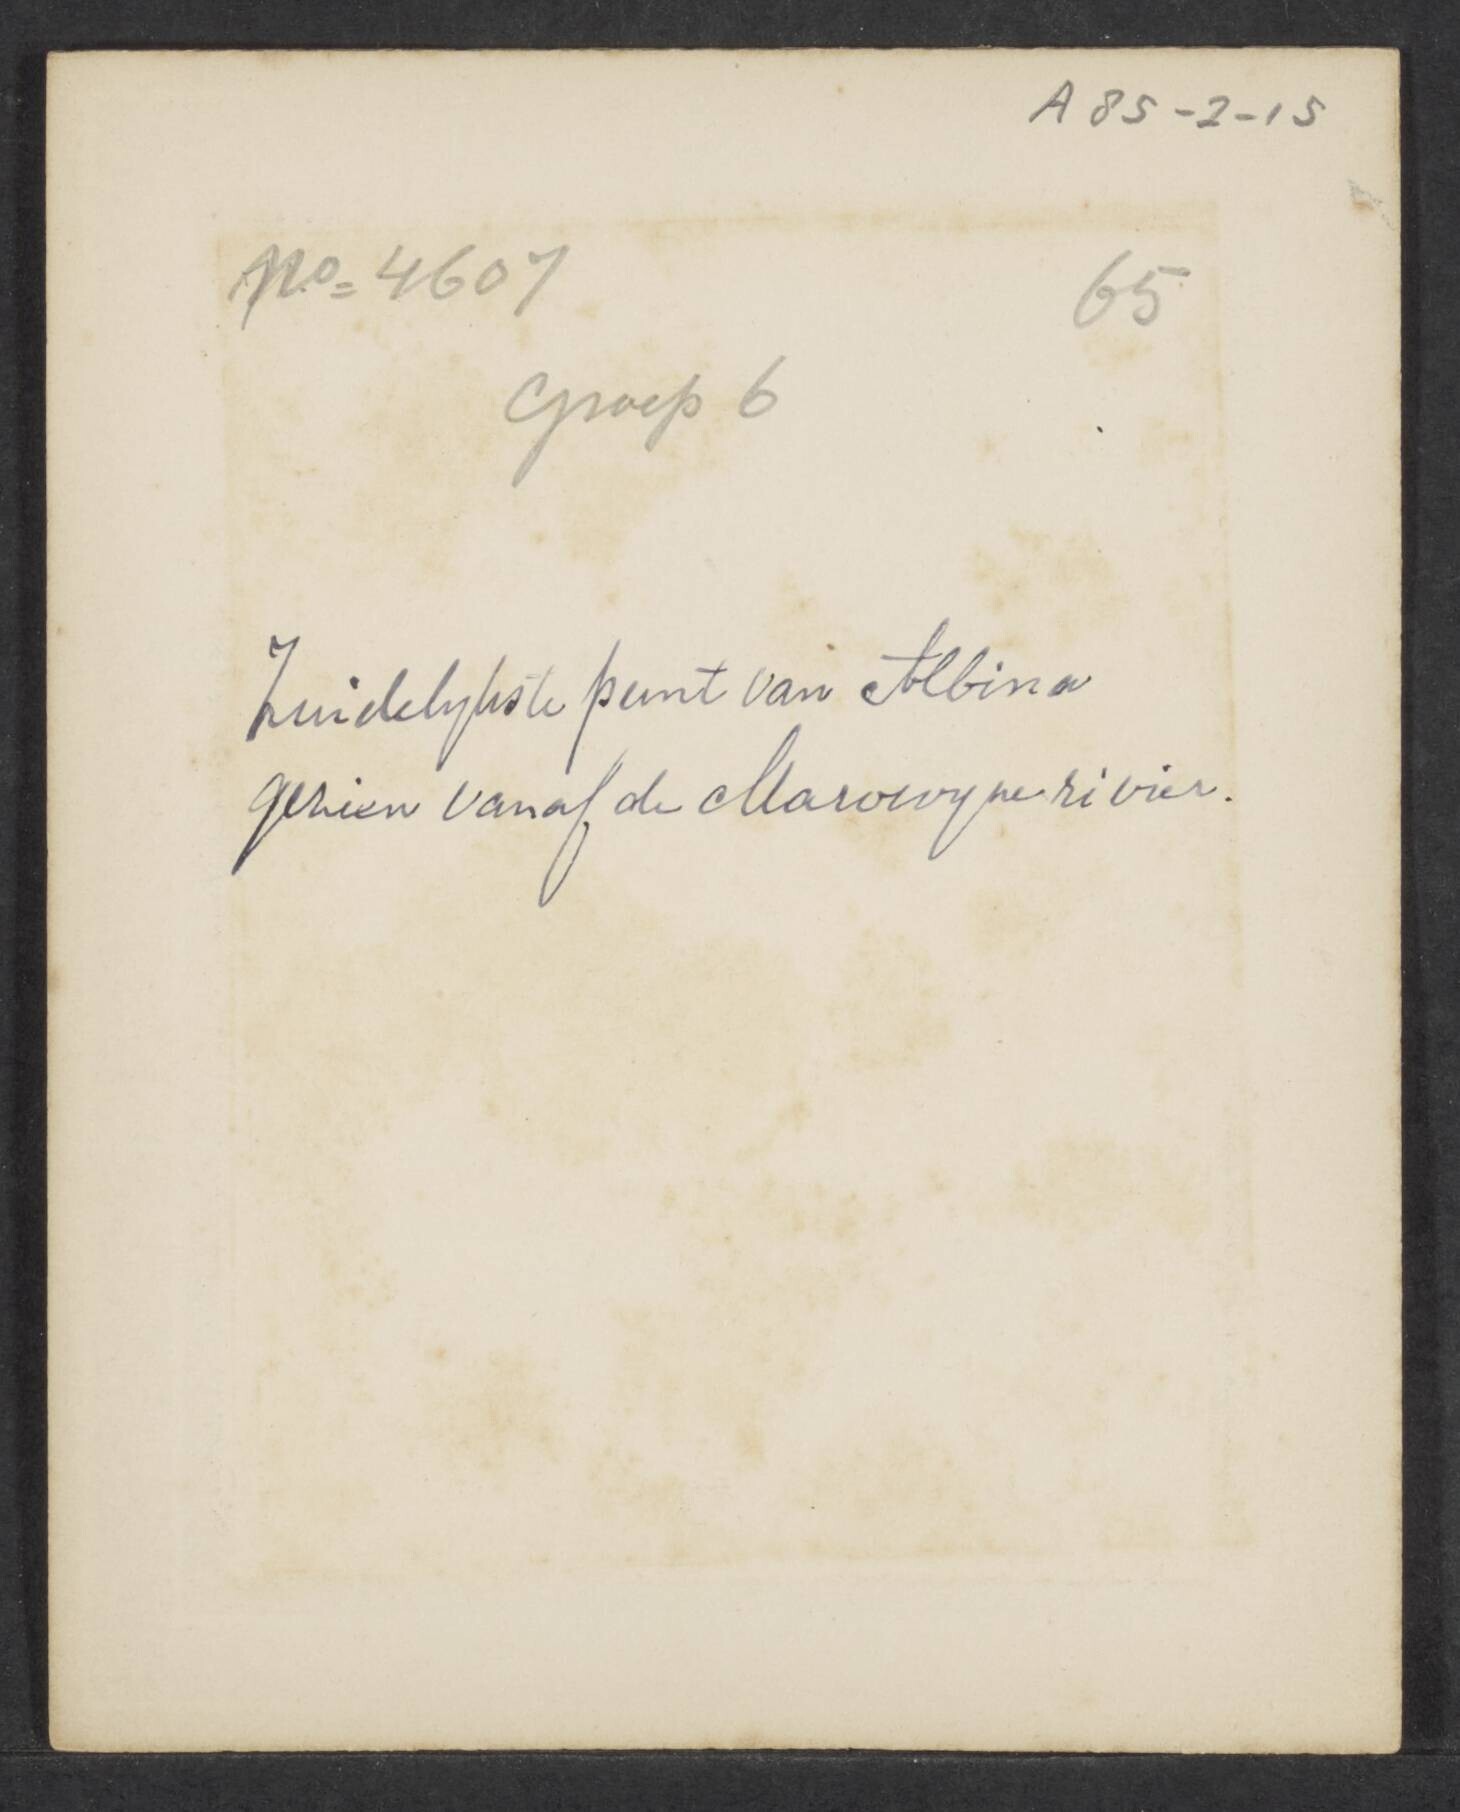 A 85-2-15
No= 4607
65
Groep 6
Zuidelykste punt van Albina
gezien vanaf de Marowyne rivier.